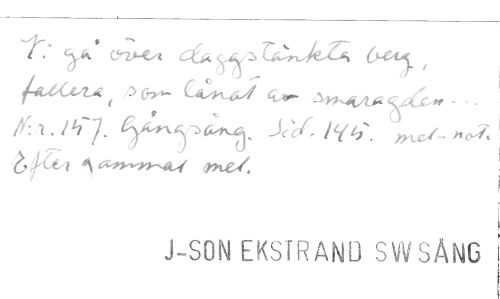 Vi gå över daggstänkta berg,
fallera, som lånat av smaragden...
N:r. 157. Gångsång. Sid. 145. mel-not.
Efter gammal mel.
J-SON EKSTRAND SW SÅNG